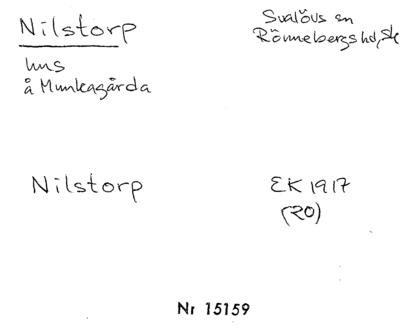 Nilstorp
Svalövs sn
Rönnebergs hd, Sk
hus
å Munkagårda
Nilstorp
EK 1917
(20)
Nr 15159